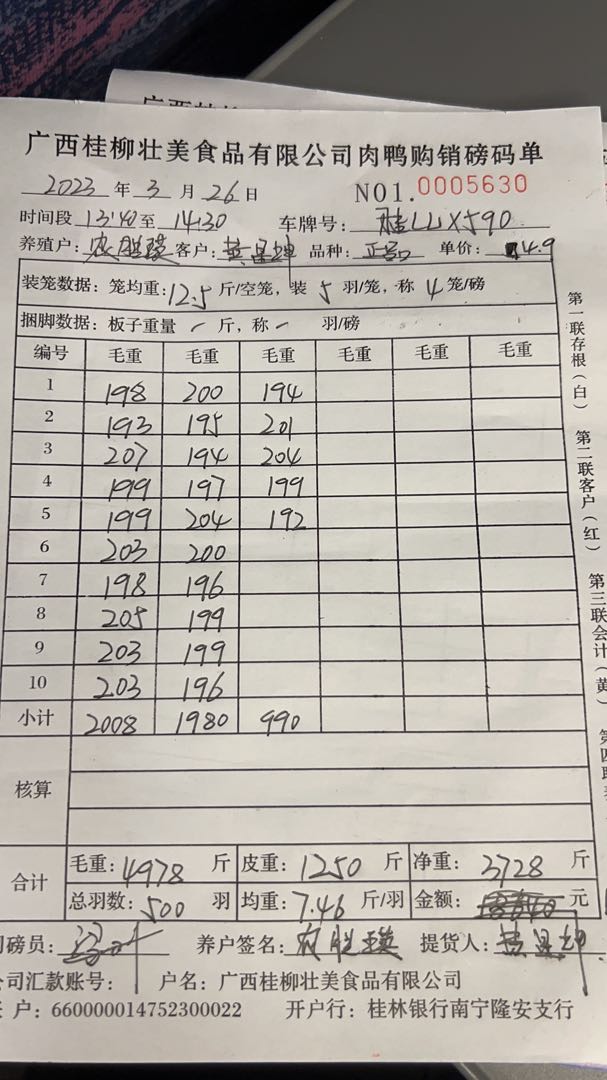 广西桂柳壮美食品有限公司肉鸭购销磅码单
2023 年 3 月 26 日 NO1.0005630
时间段 13:40 至 14:30 车牌号: 桂LLX590
养殖户: 农 瑛 客户: 黄 坤 品种: 单价: 4.9
装笼数据: 笼均重: 12.5 斤/空笼, 装 5 羽/笼, 称 4 笼/磅
捆脚数据: 板子重量 — 斤, 称 — 羽/磅
编号 毛重 毛重 毛重 毛重 毛重 毛重
1 198 200 194
2 193 195 201
3 207 194 204
4 199 197 199
5 199 204 192
6 203 200
7 198 196
8 205 199
9 203 199
10 203 196
小计 2008 1980 990
核算
合计 毛重: 4978 斤 皮重: 1250 斤 净重: 3728 斤
总羽数: 500 羽 均重: 7.46 斤/羽 金额: 元
磅员: 养户签名: 农 瑛 提货人: 黄 坤
公司汇款账号: 户名: 广西桂柳壮美食品有限公司
户: 660000014752300022 开户行: 桂林银行南宁隆安支行
第一联存根(白)
第二联客户(红)
第三联会计(黄)